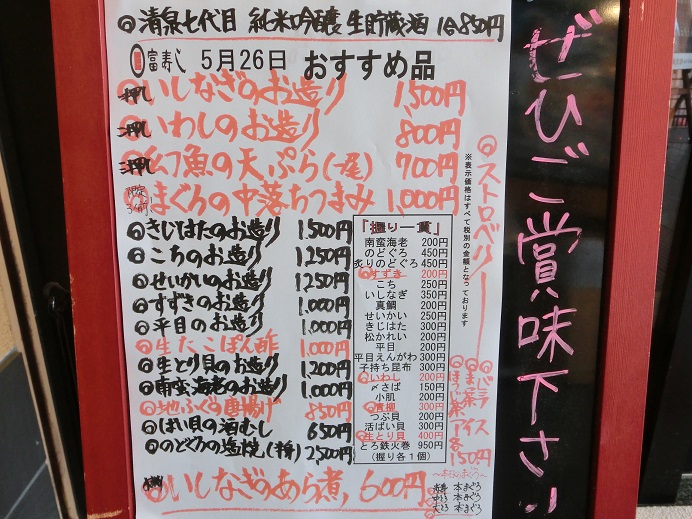 ◎清泉七代目 純米吟醸 生貯蔵酒 1合850円
富寿し 5月26日 おすすめ品
押し ◎いしなぎのお造り 1,500円
押し ◎いわしのお造り 800円
押し ◎幻魚の天ぷら(一尾) 700円
限定 ◎まぐろの中落ちつまみ 1,000円
◎きじはたのお造り 1,500円
◎こちのお造り 1,250円
◎せいかいのお造り 1,250円
◎すずきのお造り 1,000円
◎平目のお造り 1,000円
◎生たこぽん酢 1,000円
◎生とり貝のお造り 1,200円
◎南蛮海老のお造り 1,000円
◎地ふぐの唐揚げ 850円
◎ばい貝の酒むし 650円
◎のどぐろの塩焼(半身) 2,500円
◎いしなぎのあら煮, 600円
「握り一貫」
南蛮海老 200円
のどぐろ 450円
炙りのどぐろ 450円
◎すずき 200円
こち 250円
いしなぎ 350円
真鯛 200円
せいかい 250円
きじはた 300円
松かれい 200円
平目 200円
平目えんがわ 300円
子持ち昆布 300円
◎いわし 200円
〆さば 150円
小肌 200円
◎青柳 300円
つぶ貝 200円
活ばい貝 300円
◎生とり貝 400円
とろ鉄火巻 950円
(握り各1個)
※表示価格はすべて税別の金額となっております
◎ストロベリー
◎バニラ
◎ま茶
◎ほうじ茶
アイス
各150円
〜本日のまぐろ〜
赤身 本まぐろ
中とろ 本まぐろ
大とろ 本まぐろ
ぜひご賞味下さい